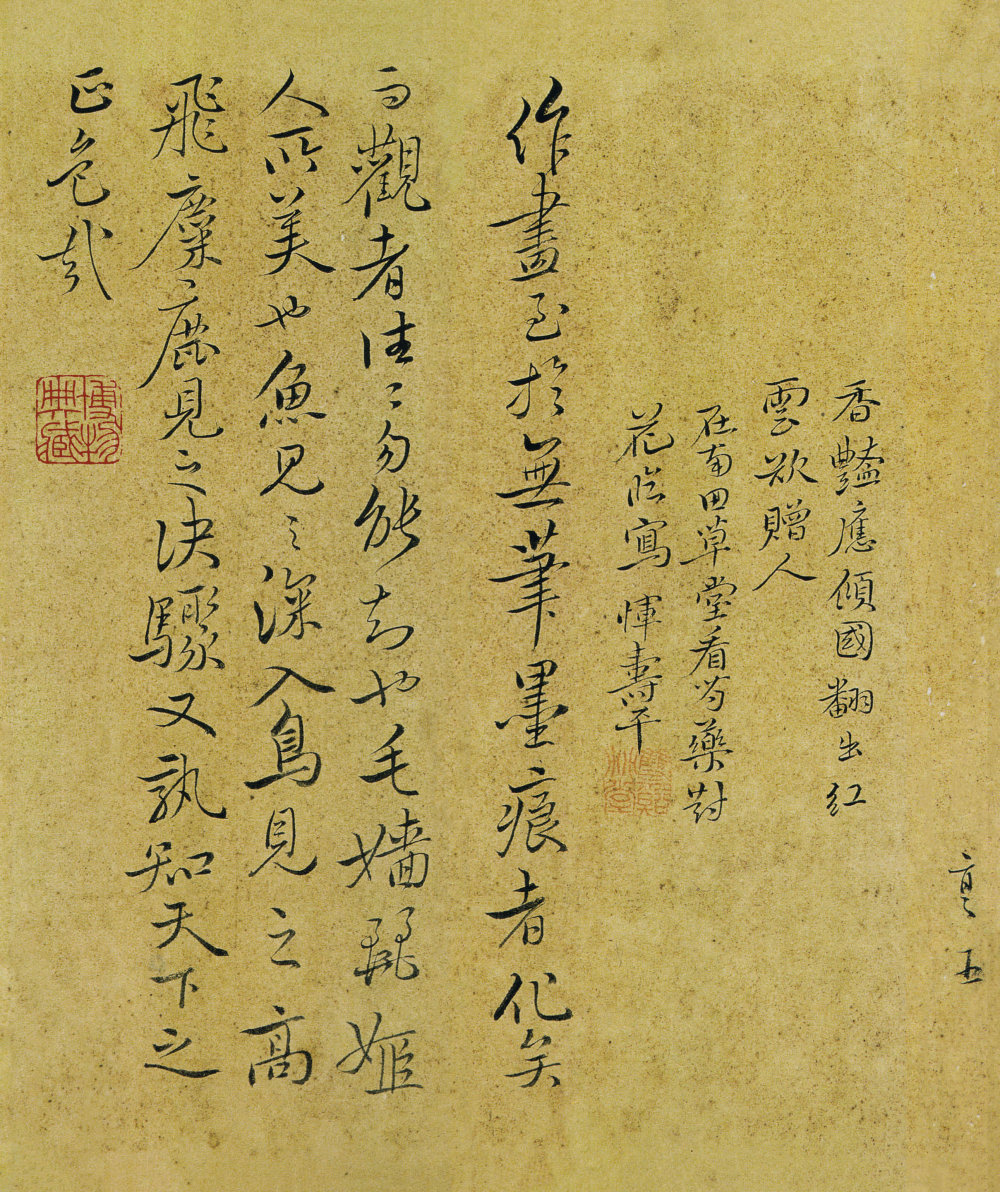 亭五
香豔應傾國翻出紅
雲欲贈人
在南田草堂看芍藥對
花臨寫 惲壽平
作畫至於無筆墨痕者化矣
而觀者往〻勿能知也毛嬙驪姬
人所美也魚見之深入鳥見之高
飛麋〻鹿見之決驟又孰知天下之
正色哉
博物
典藏